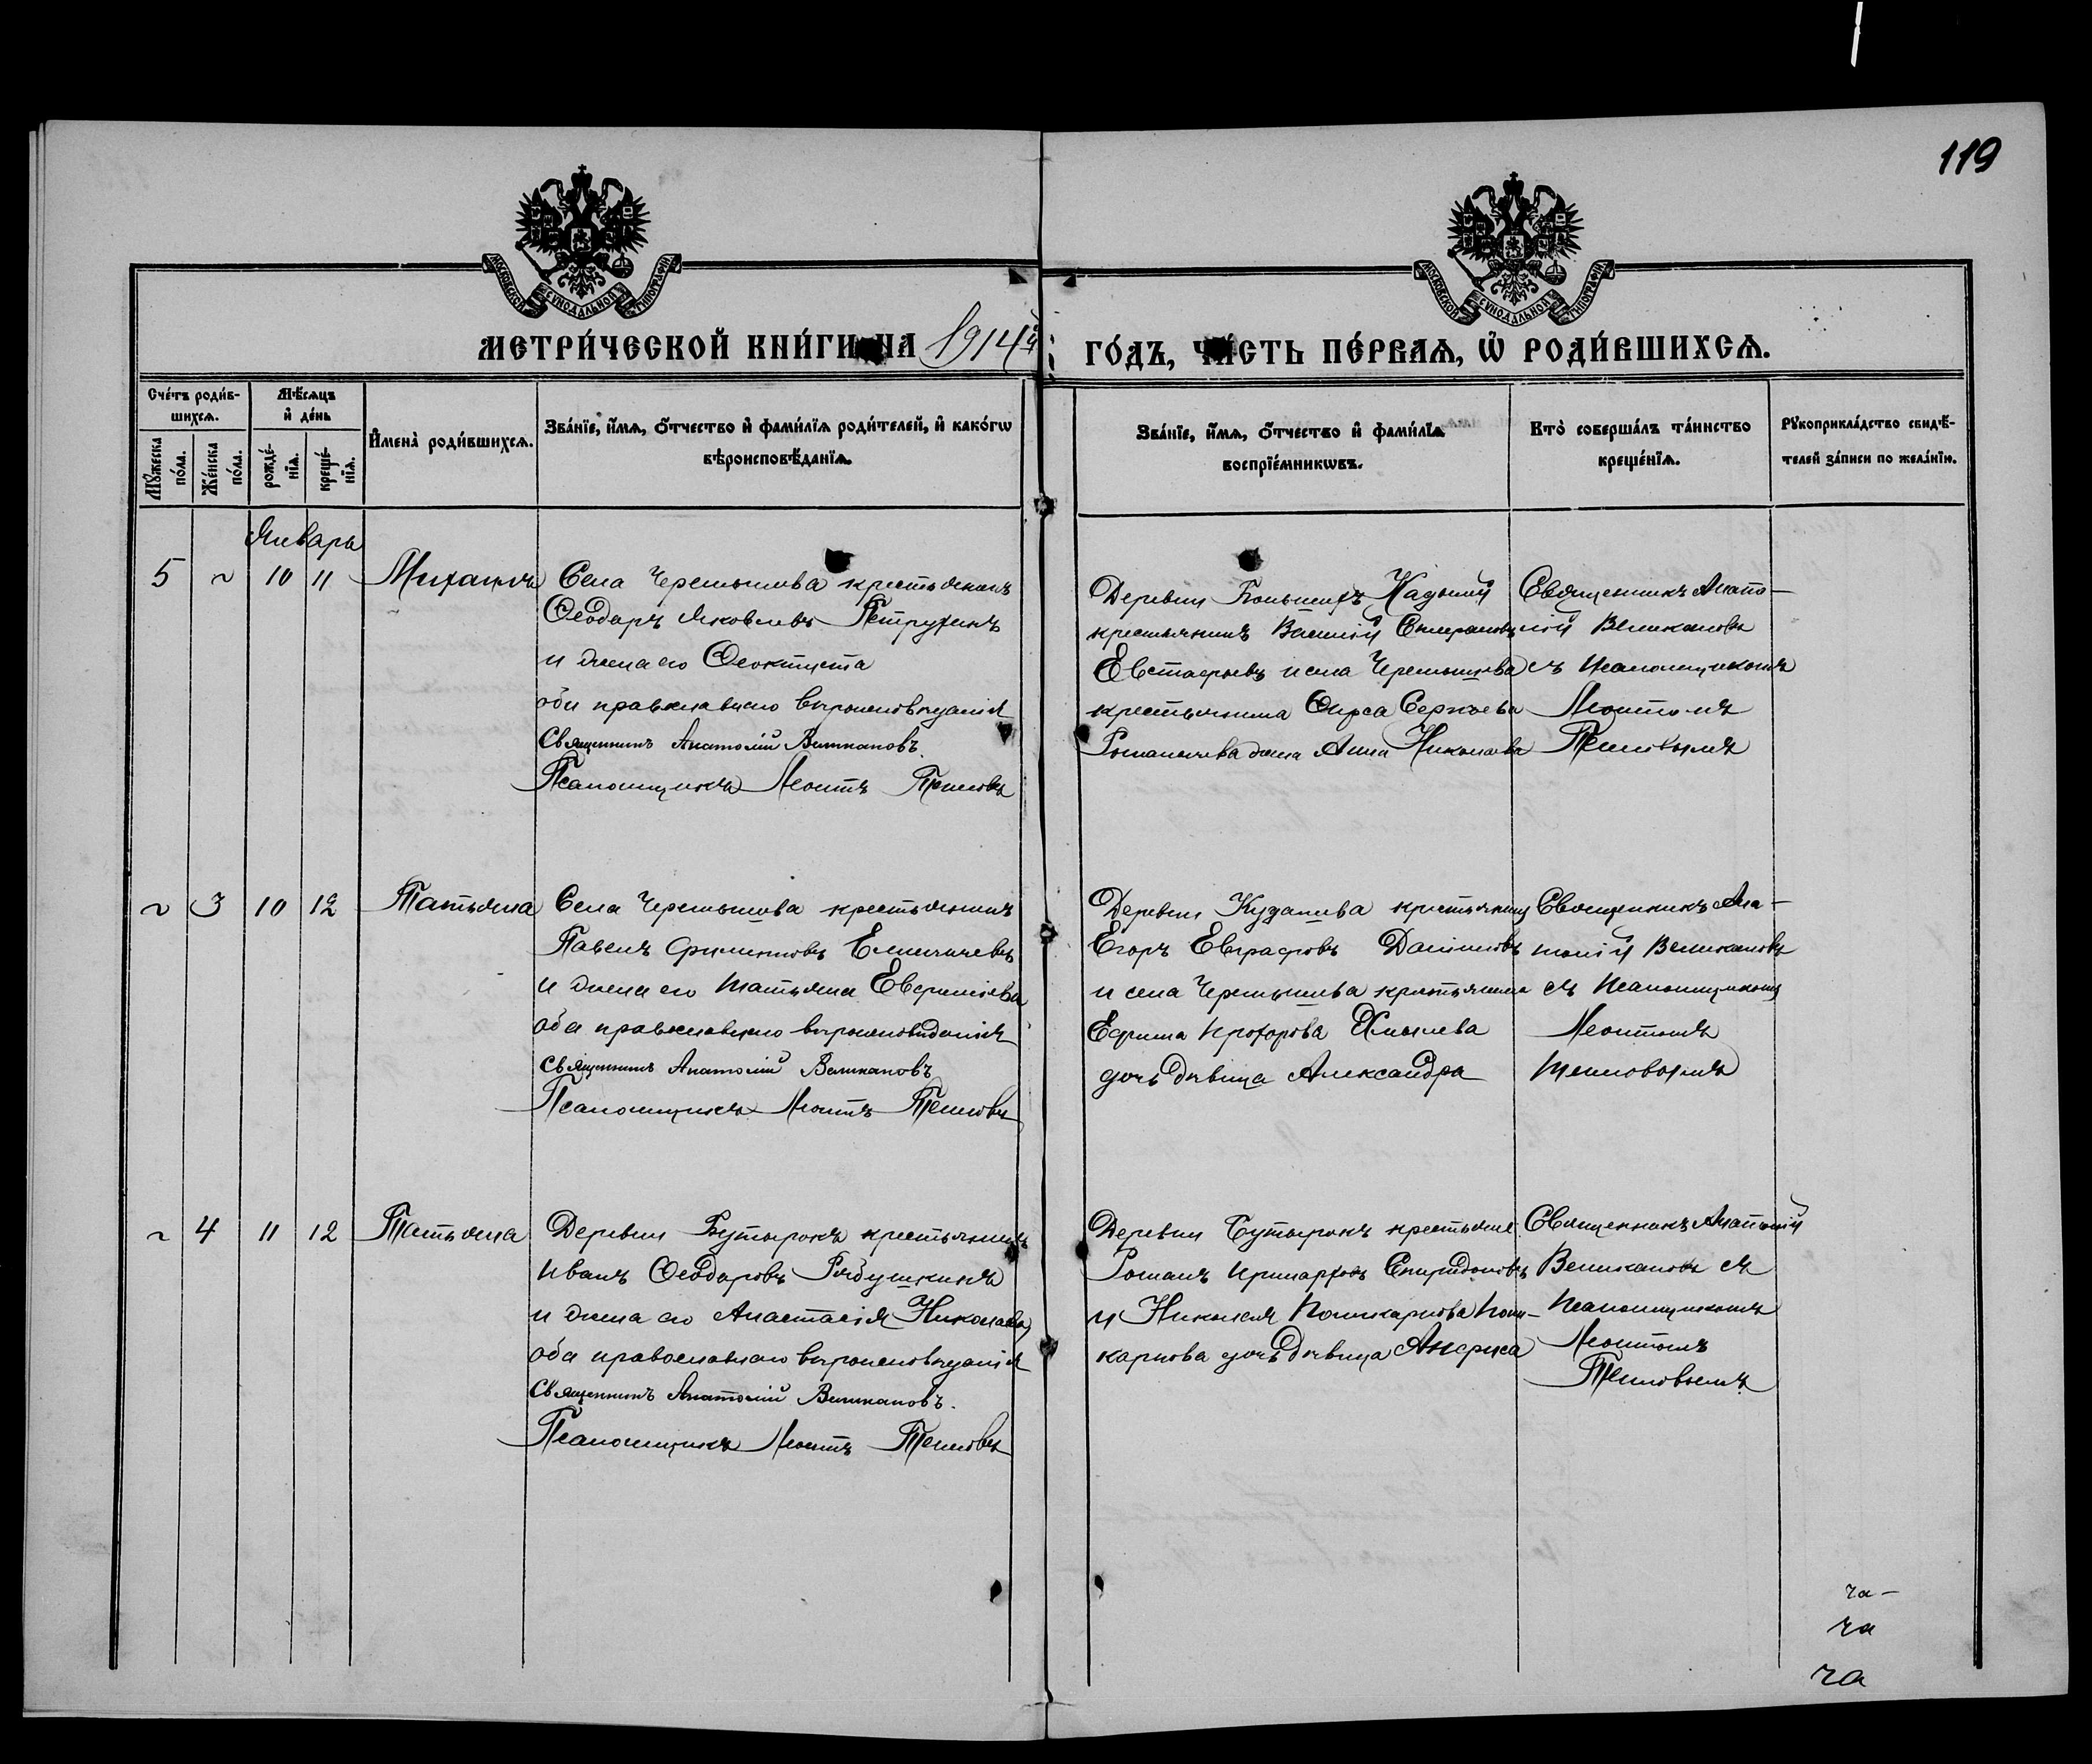 119
МОСКОВСКОЙ СУНОДАЛЬНОЙ ТИПОГРАФІИ
МОСКОВСКОЙ СУНОДАЛЬНОЙ ТИПОГРАФІИ
МЕТРИ́ЧЕСКОЙ КНИ́ГИ НА 1914й ГО́ДЪ, ЧА́СТЬ ПЕ́РВАЯ, Ѽ РОДИ́ВШИХСЯ.
Сче́тъ роди́в-
шихся.
Мꙋ́жеска по́ла.
Же́нска по́ла.
Мѣ́сяцъ
и҆ де́нь
рожде́-
нїя.
креще́-
нїя.
И҆мена̀ роди́вшихся.
Зва́нїе, и҆́мя, ѻ҆́тчество и҆ фами́лїя роди́телей, и҆ како́гѡ
вѣроисповѣ́данїя.
Зва́нїе, и҆́мя, ѻ҆́тчество и҆ фами́лїя
воспрїе́мникѡвъ.
Кто̀ соверша́лъ та́инство
креще́нїя.
Рꙋкоприкла́дство свидѣ́-
телей за́писи по жела́нїю.
Январь
5 ~ 10 11 Михаилъ
Села Черемышева крестьянинъ
Ѳеодоръ Яковлевъ Петрухинъ
и жена его Ѳеоктиста
оби православнаго вѣроисповѣданія
Священникъ Анатолій Великановъ.
Псаломщикъ Леонтъ Тепловъ
Деревни Кадыши
крестьянинъ Василій
Евстафьевъ и села Черемышева
крестьянина Ѳирса Сергѣева
жена Анна Николаева
Священникъ Анато-
лій Великановъ
съ псаломщикомъ
Леонтомъ
Тепловымъ
~ 3 10 12 Татьяна
Села Черемышева крестьянинъ
Павелъ Филиповъ
и жена его Татьяна Евфиміева
оба православнаго вѣроисповѣданія
Священникъ Анатолій Великановъ
Псаломщикъ Леонтъ Тепловъ
Деревни Кудашева крестьянинъ
Егоръ Евграфовъ Даниловъ
и села Черемышева крестьянина
Ефима Прохорова Хмылева
дочь дѣвица Александра
Священникъ Ана-
толій Великановъ
съ псаломщикомъ
Леонтомъ
Тепловымъ
~ 4 11 12 Татьяна
Деревни Бутырокъ крестьянинъ
Иванъ Ѳеодоровъ Рябушкинъ
и жена его Анастасія Николаева
оба православнаго вѣроисповѣданія
Священникъ Анатолій Великановъ.
Псаломщикъ Леонтъ Тепловъ
Деревни Бутырокъ крестьяне
Романъ Иринарховъ Спиридоновъ
и Николая Поликарпова Поли-
карпова дочь дѣвица Анфиса
Священникъ Анатолій
Великановъ съ
псаломщикомъ
Леонтомъ
Тепловымъ
ча -
ча
ча